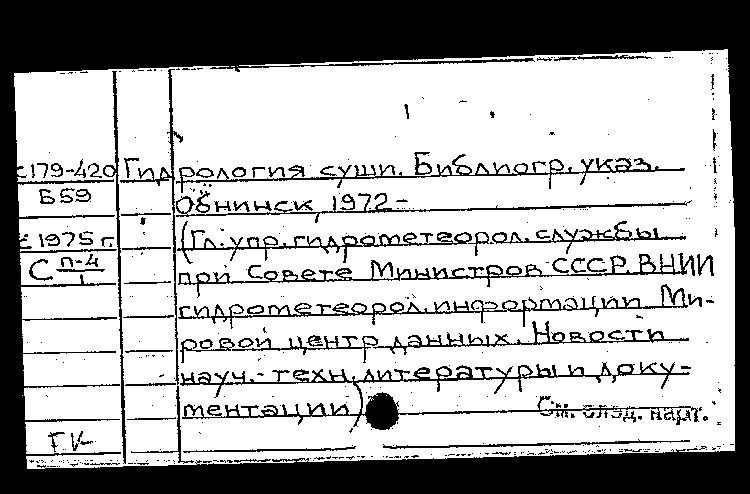 с179-420 Гидрология суши. Библиогр. указ.
Б59
Обнинск, 1972-
с 1975 г. (Гл. упр. гидрометеорол. службы
С п-4/1 при Совете Министров СССР. ВНИИ
гидрометеорол. информации. Ми-
ровой центр данных. Новости
науч.-техн. литературы и доку-
ментации)
См. след. карт.
ГК